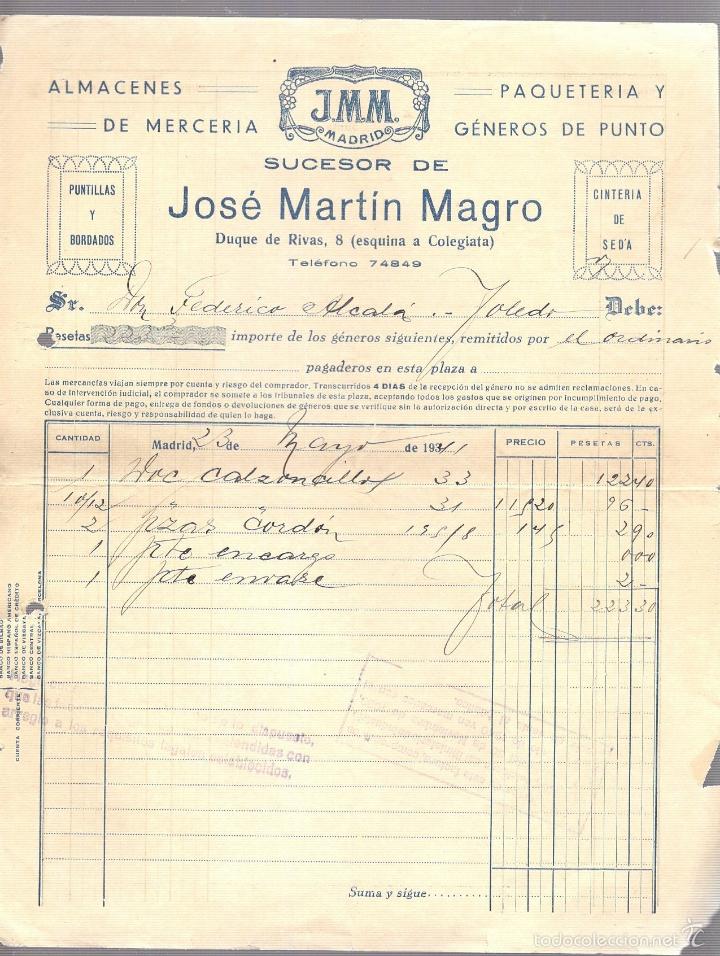 ALMACENES
DE MERCERIA
J.M.M.
MADRID
PAQUETERIA Y
GÉNEROS DE PUNTO
SUCESOR DE
José Martín Magro
Duque de Rivas, 8 (esquina a Colegiata)
Teléfono 74849
PUNTILLAS
Y
BORDADOS
CINTERIA
DE
SEDA
Sr. Don Federico Alcalá .- Toledo Debe:
Pesetas 223,30 importe de los géneros siguientes, remitidos por el ordinario
pagaderos en esta plaza a
Las mercancías viajan siempre por cuenta y riesgo del comprador. Transcurridos 4 DIAS de la recepción del género no se admiten reclamaciones. En ca-
so de intervención judicial, el comprador se somete a los tribunales de esta plaza, aceptando todos los gastos que se originen por incumplimiento de pago.
Cualquier forma de pago, entrega de fondos o devoluciones de géneros que se verifique sin la autorización directa y por escrito de la casa, será de la ex-
clusiva cuenta, riesgo y responsabilidad de quien lo haga.
CANTIDAD Madrid, 23 de Mayo de 1941 PRECIO PESETAS CTS.
1 Doc calzoncillos 33 122 40
10/12 31 115 20 96 -
2 pzas cordón 195/8 145 2 90
1 pte encargo 000
1 pte envase 2 -
Total 223 30
BANCO DE BILBAO
BANCO HISPANO AMERICANO
BANCO ESPAÑOL DE CRÉDITO
BANCO DE VIZCAYA
BANCO CENTRAL
BANCO DE VIZCAYA, BARCELONA
CUENTA CORRIENTE
lo dispuesto,
que las
vendidas con
arreglo a los requisitos legales establecidos.
Suma y sigue
todocoleccion.net